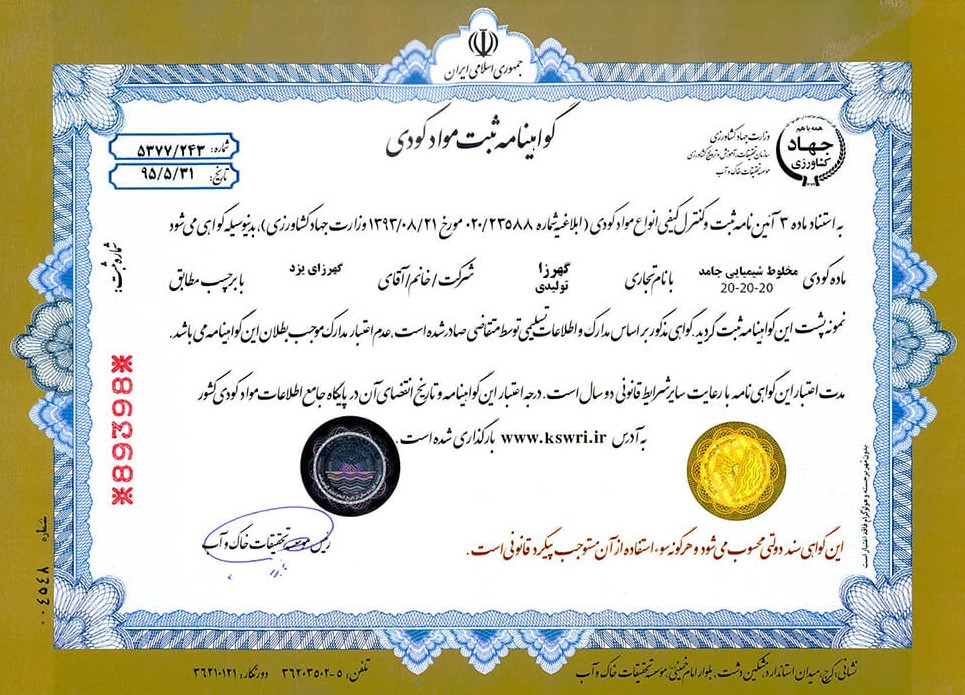 جمهوری اسلامی ایران
همه با هم
جهاد
کشاورزی
وزارت جهاد کشاورزی
سازمان تحقیقات، آموزش و ترویج کشاورزی
موسسه تحقیقات خاک و آب
گواهینامه ثبت مواد کودی
شماره: ۵۳۷۷/۲۴۳
تاریخ: ۹۵/۵/۳۱
به استناد ماده ۳ آئین نامه ثبت و کنترل کیفی انواع مواد کودی (ابلاغیه شماره ۰۲۰/۲۳۵۸۸ مورخ ۱۳۹۳/۰۸/۲۱ وزارت جهاد کشاورزی)، بدینوسیله گواهی می شود
ماده کودی مخلوط شیمیایی جامد 20-20-20 با نام تجاری گهرزا تولیدی شرکت/خانم/آقای گهرزای یزد با برچسب مطابق
نمونه پشت این گواهینامه ثبت گردید. گواهی مذکور بر اساس مدارک و اطلاعات تسلیمی توسط متقاضی صادر شده است، عدم اعتبار مدارک موجب بطلان این گواهینامه می باشد.
مدت اعتبار این گواهی نامه با رعایت سایر شرایط قانونی دو سال است. درجه اعتبار این گواهینامه و تاریخ انقضای آن در پایگاه جامع اطلاعات مواد کودی کشور
به آدرس www.kswri.ir بارگذاری شده است.
این گواهی سند دولتی محسوب می شود و هرگونه سوء استفاده از آن مستوجب پیگرد قانونی است.
رئیس موسسه تحقیقات خاک و آب
شماره ثبت:
*89398*
بدون مهر برجسته و هولوگرام فاقد اعتبار است
شماره ۰۰۴۵۴۸
نشانی: کرج، میدان استاندارد، مشکین دشت، بلوار امام خمینی، موسسه تحقیقات خاک و آب
تلفن: ۵-۳۶۲۰۳۵۰۲ دورنگار: ۳۶۲۱۰۱۲۱